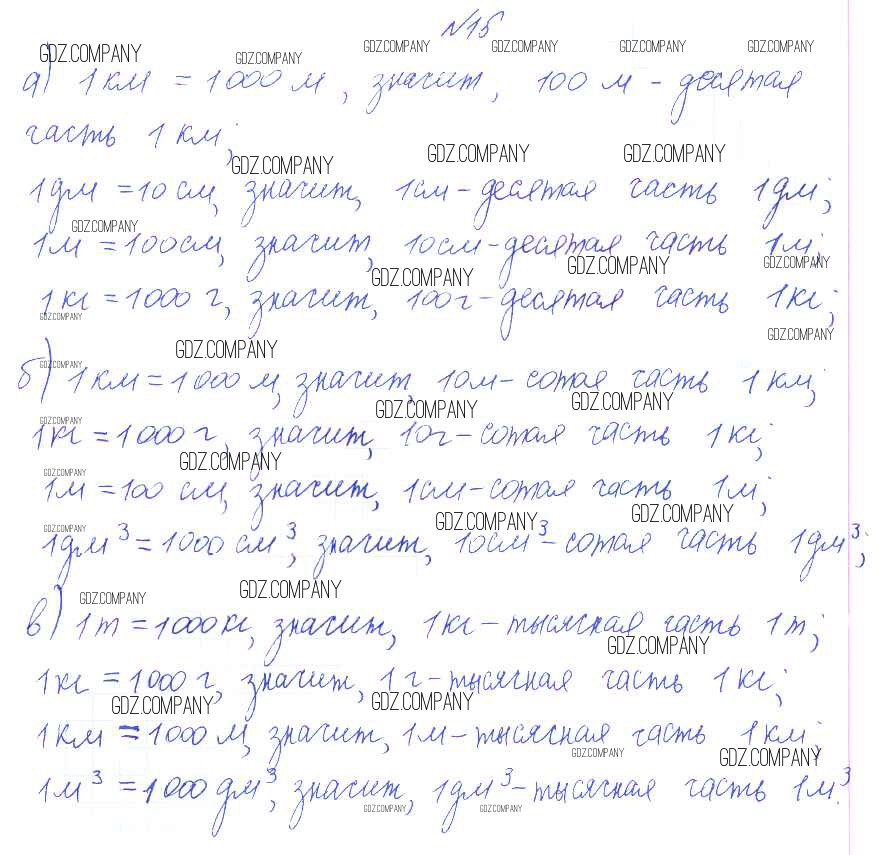 №15
GDZ.COMPANY GDZ.COMPANY GDZ.COMPANY GDZ.COMPANY GDZ.COMPANY GDZ.COMPANY
а) 1 км = 1000 м, значит, 100 м - десятая
часть 1 км;
GDZ.COMPANY GDZ.COMPANY GDZ.COMPANY
1 дм = 10 см, значит, 1 см - десятая часть 1 дм;
GDZ.COMPANY
1 м = 100 см, значит, 10 см - десятая часть 1 м;
GDZ.COMPANY GDZ.COMPANY GDZ.COMPANY
1 кг = 1000 г, значит, 100 г - десятая часть 1 кг;
GDZ.COMPANY GDZ.COMPANY
GDZ.COMPANY GDZ.COMPANY
б) 1 км = 1000 м, значит, 10 м - сотая часть 1 км;
GDZ.COMPANY GDZ.COMPANY GDZ.COMPANY
1 кг = 1000 г, значит, 10 г - сотая часть 1 кг;
GDZ.COMPANY GDZ.COMPANY
1 м = 100 см, значит, 1 см - сотая часть 1 м;
GDZ.COMPANY GDZ.COMPANY GDZ.COMPANY
1 дм³ = 1000 см³, значит, 10 см³ - сотая часть 1 дм³;
GDZ.COMPANY GDZ.COMPANY
в) 1 т = 1000 кг, значит, 1 кг - тысячная часть 1 т;
GDZ.COMPANY
1 кг = 1000 г, значит, 1 г - тысячная часть 1 кг;
GDZ.COMPANY GDZ.COMPANY
1 км = 1000 м, значит, 1 м - тысячная часть 1 км;
GDZ.COMPANY GDZ.COMPANY
1 м³ = 1000 дм³, значит, 1 дм³ - тысячная часть 1 м³.
GDZ.COMPANY GDZ.COMPANY